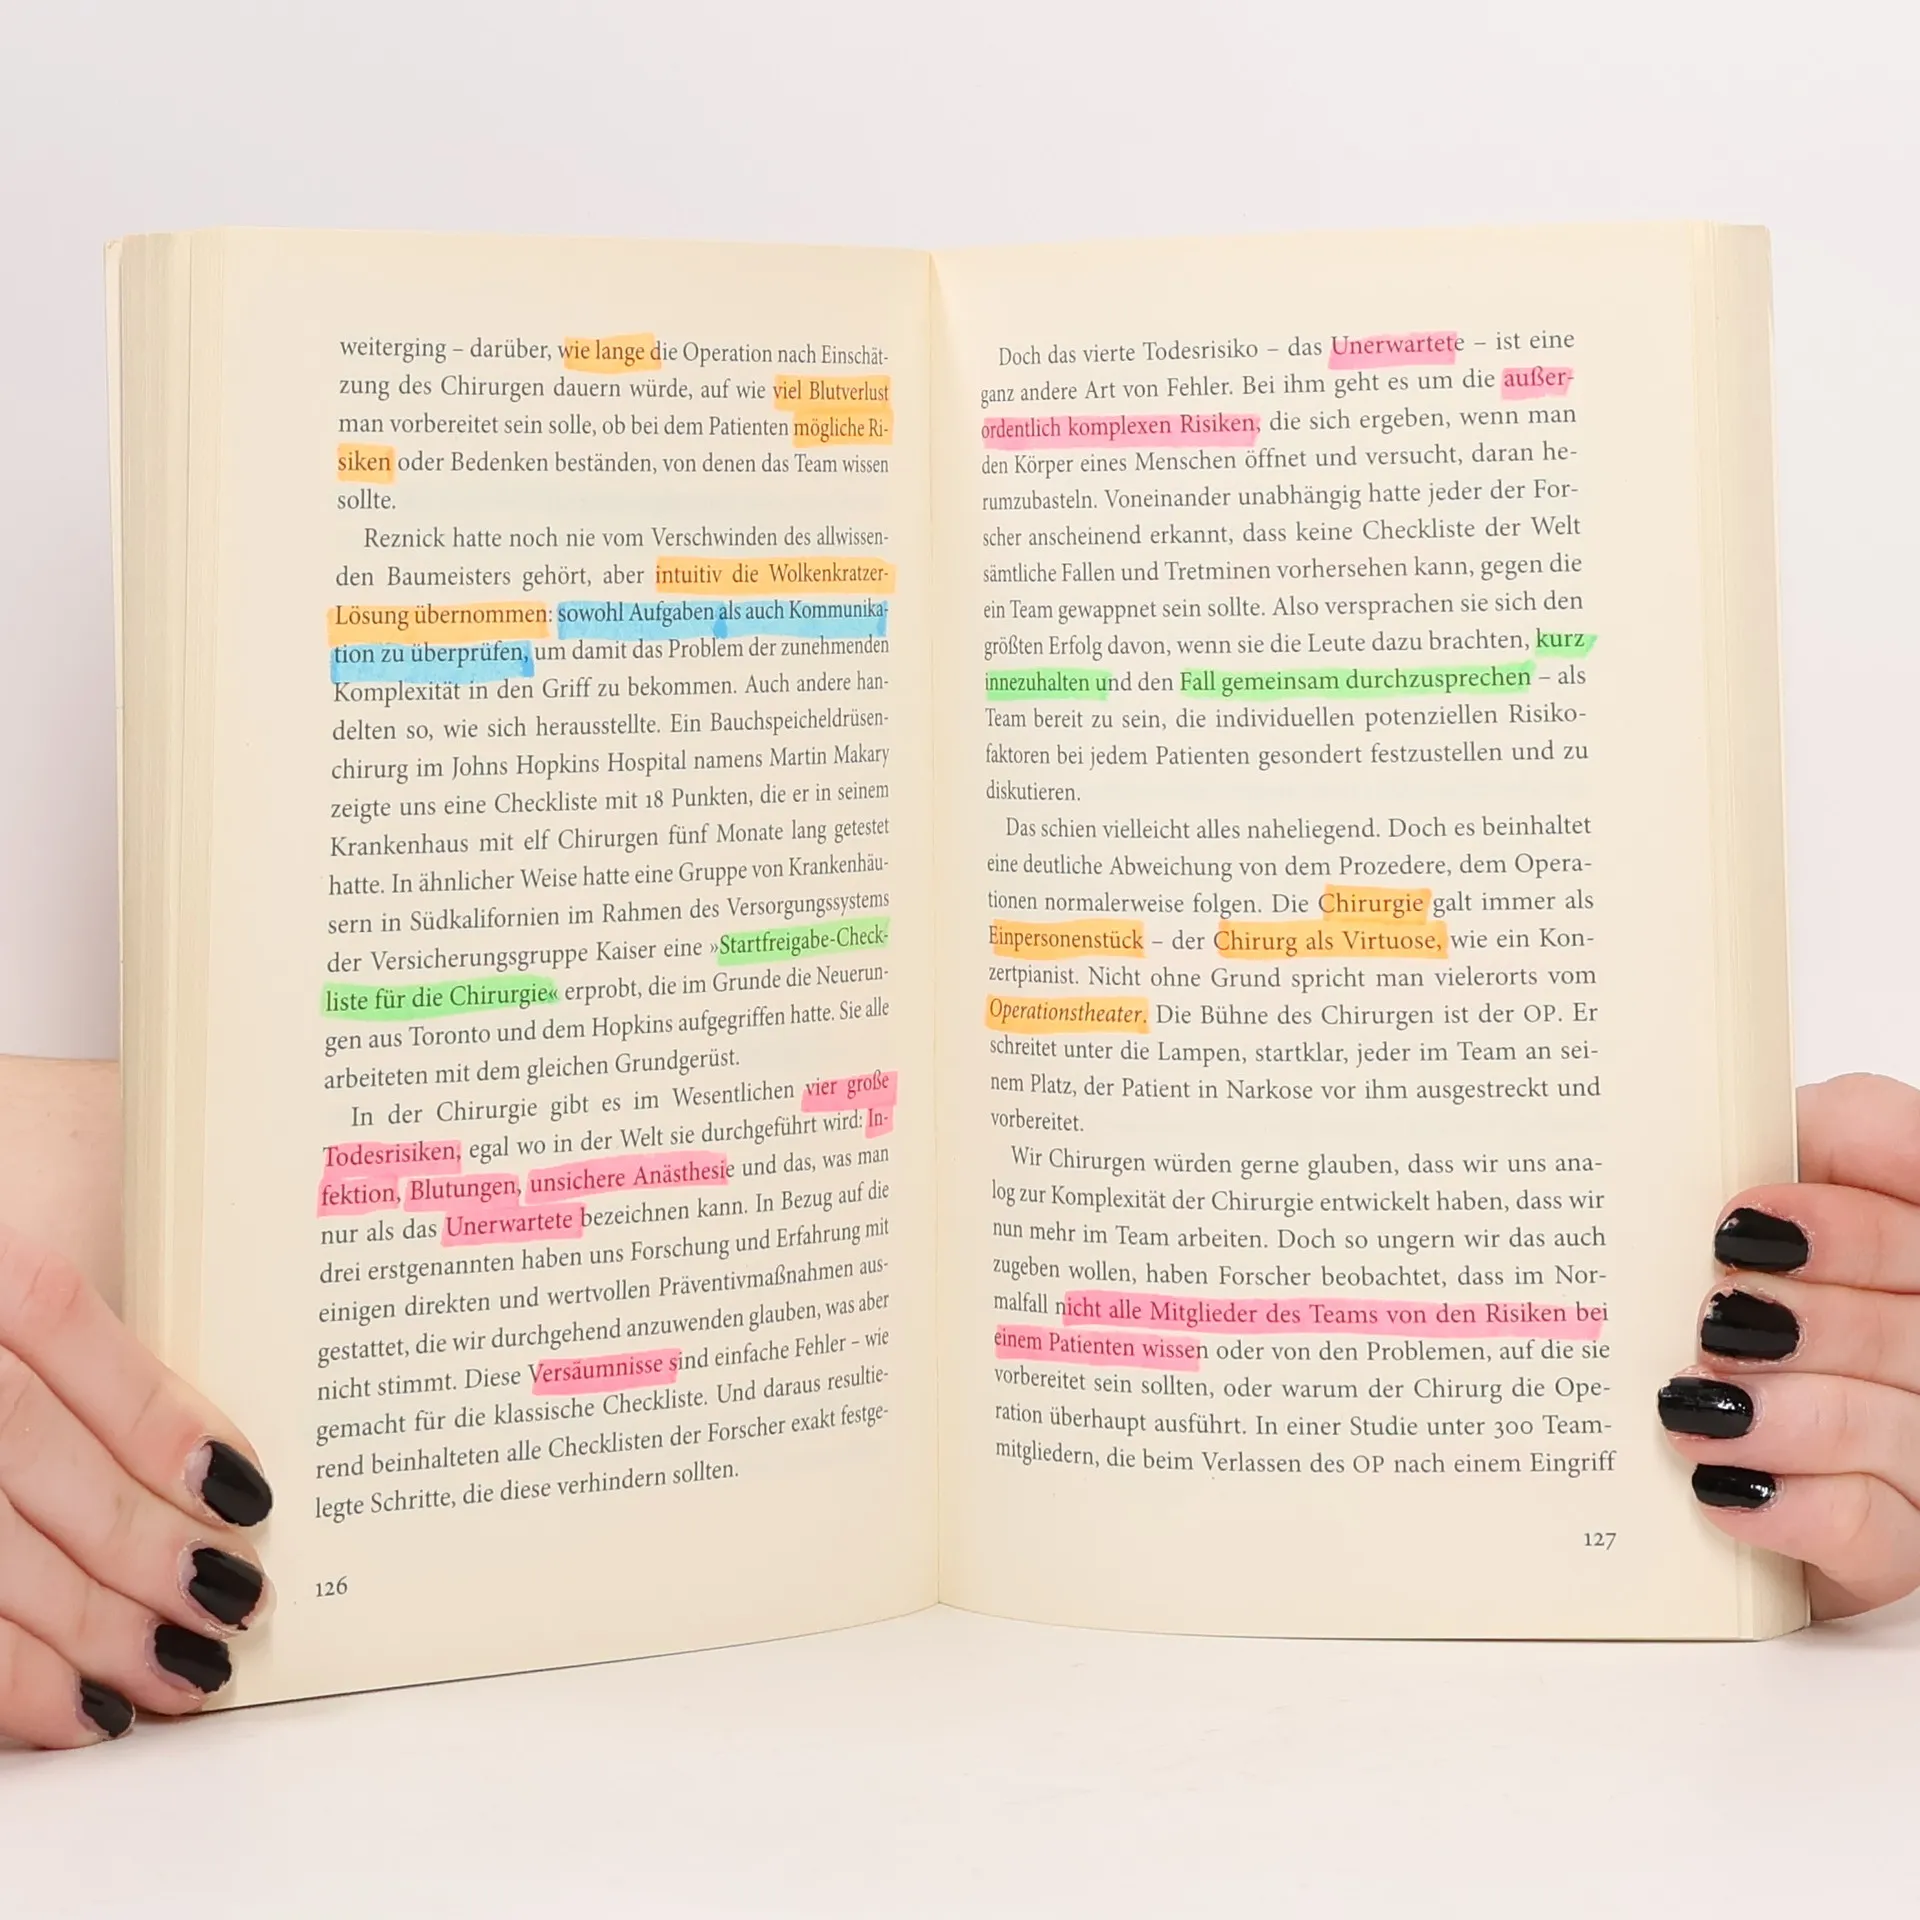 weiterging – darüber, wie lange die Operation nach Einschät-
zung des Chirurgen dauern würde, auf wie viel Blutverlust
man vorbereitet sein solle, ob bei dem Patienten mögliche Ri-
siken oder Bedenken beständen, von denen das Team wissen
sollte.
Reznick hatte noch nie vom Verschwinden des allwissen-
den Baumeisters gehört, aber intuitiv die Wolkenkratzer-
Lösung übernommen: sowohl Aufgaben als auch Kommunika-
tion zu überprüfen, um damit das Problem der zunehmenden
Komplexität in den Griff zu bekommen. Auch andere han-
delten so, wie sich herausstellte. Ein Bauchspeicheldrüsen-
chirurg im Johns Hopkins Hospital namens Martin Makary
zeigte uns eine Checkliste mit 18 Punkten, die er in seinem
Krankenhaus mit elf Chirurgen fünf Monate lang getestet
hatte. In ähnlicher Weise hatte eine Gruppe von Krankenhäu-
sern in Südkalifornien im Rahmen des Versorgungssystems
der Versicherungsgruppe Kaiser eine »Startfreigabe-Check-
liste für die Chirurgie« erprobt, die im Grunde die Neuerun-
gen aus Toronto und dem Hopkins aufgegriffen hatte. Sie alle
arbeiteten mit dem gleichen Grundgerüst.
In der Chirurgie gibt es im Wesentlichen vier große
Todesrisiken, egal wo in der Welt sie durchgeführt wird: In-
fektion, Blutungen, unsichere Anästhesie und das, was man
nur als das Unerwartete bezeichnen kann. In Bezug auf die
drei erstgenannten haben uns Forschung und Erfahrung mit
einigen direkten und wertvollen Präventivmaßnahmen aus-
gestattet, die wir durchgehend anzuwenden glauben, was aber
nicht stimmt. Diese Versäumnisse sind einfache Fehler – wie
gemacht für die klassische Checkliste. Und daraus resultie-
rend beinhalteten alle Checklisten der Forscher exakt festge-
legte Schritte, die diese verhindern sollten.
126
Doch das vierte Todesrisiko – das Unerwartete – ist eine
ganz andere Art von Fehler. Bei ihm geht es um die außer-
ordentlich komplexen Risiken, die sich ergeben, wenn man
den Körper eines Menschen öffnet und versucht, daran he-
rumzubasteln. Voneinander unabhängig hatte jeder der For-
scher anscheinend erkannt, dass keine Checkliste der Welt
sämtliche Fallen und Tretminen vorhersehen kann, gegen die
ein Team gewappnet sein sollte. Also versprachen sie sich den
größten Erfolg davon, wenn sie die Leute dazu brachten, kurz
innezuhalten und den Fall gemeinsam durchzusprechen – als
Team bereit zu sein, die individuellen potenziellen Risiko-
faktoren bei jedem Patienten gesondert festzustellen und zu
diskutieren.
Das schien vielleicht alles naheliegend. Doch es beinhaltet
eine deutliche Abweichung von dem Prozedere, dem Opera-
tionen normalerweise folgen. Die Chirurgie galt immer als
Einpersonenstück – der Chirurg als Virtuose, wie ein Kon-
zertpianist. Nicht ohne Grund spricht man vielerorts vom
Operationstheater. Die Bühne des Chirurgen ist der OP. Er
schreitet unter die Lampen, startklar, jeder im Team an sei-
nem Platz, der Patient in Narkose vor ihm ausgestreckt und
vorbereitet.
Wir Chirurgen würden gerne glauben, dass wir uns ana-
log zur Komplexität der Chirurgie entwickelt haben, dass wir
nun mehr im Team arbeiten. Doch so ungern wir das auch
zugeben wollen, haben Forscher beobachtet, dass im Nor-
malfall nicht alle Mitglieder des Teams von den Risiken bei
einem Patienten wissen oder von den Problemen, auf die sie
vorbereitet sein sollten, oder warum der Chirurg die Ope-
ration überhaupt ausführt. In einer Studie unter 300 Team-
mitgliedern, die beim Verlassen des OP nach einem Eingriff
127